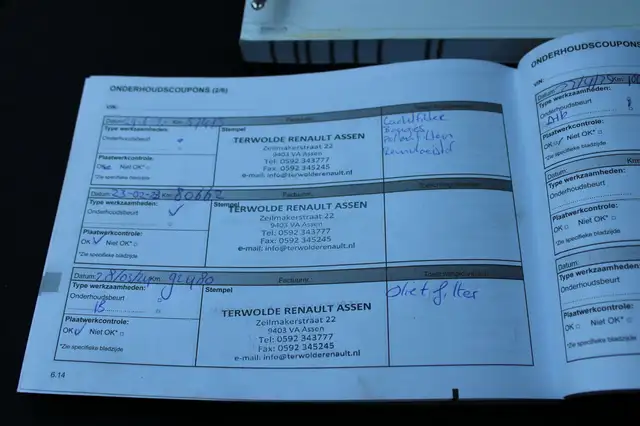 ONDERHOUDSCOUPONS (2/6)
VIN:
Datum: Km:
Type werkzaamheden:
Onderhoudsbeurt
Plaatwerkcontrole:
OK Niet OK*
*Zie specifieke bladzijde
Stempel
TERWOLDE RENAULT ASSEN
Zeilmakerstraat 22
9403 VA Assen
Tel: 0592 343777
Fax: 0592 345245
e-mail: info@terwolderenault.nl
Datum: 23-02-23 Km: 80662
Type werkzaamheden:
Onderhoudsbeurt
Plaatwerkcontrole:
OK Niet OK*
*Zie specifieke bladzijde
Stempel
TERWOLDE RENAULT ASSEN
Zeilmakerstraat 22
9403 VA Assen
Tel: 0592 343777
Fax: 0592 345245
e-mail: info@terwolderenault.nl
Datum: 28/03/24 Km: 92480
Type werkzaamheden:
Onderhoudsbeurt
B
Plaatwerkcontrole:
OK Niet OK*
*Zie specifieke bladzijde
Stempel
TERWOLDE RENAULT ASSEN
Zeilmakerstraat 22
9403 VA Assen
Tel: 0592 343777
Fax: 0592 345245
e-mail: info@terwolderenault.nl
Oliefilter
6.14
ONDERHOUDSCOUPONS
VIN:
Type werkzaamheden:
Onderhoudsbeurt
Plaatwerkcontrole:
OK Niet OK*
*Zie specifieke bladzijde
Datum:
Type werkzaamheden:
Onderhoudsbeurt
Plaatwerkcontrole:
OK Niet OK*
*Zie specifieke bladzijde
Datum:
Type werkzaamheden:
Onderhoudsbeurt
Plaatwerkcontrole:
OK Niet OK*
*Zie specifieke bladzijde